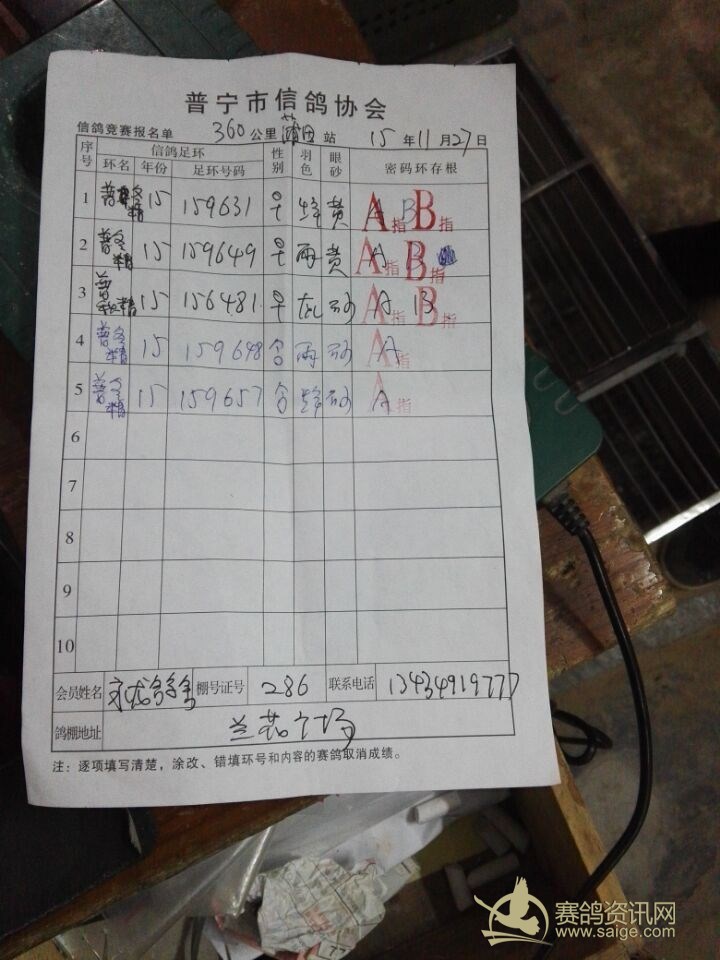 普宁市信鸽协会
信鸽竞赛报名单 360 公里 莆田 站 15 年 11 月 27 日
序号 信鸽足环 性别 羽色 眼砂 密码环存根
环名 年份 足环号码
1 15 159631 黄 A指 B B指
2 普冬精 15 159649 雨 黄 A指 A B指
3 普 精 15 156481 砂 A指 A B指 B
4 普冬精 15 159648 雨 砂 A指 A
5 普冬精 15 159657 砂 A指 A
6
7
8
9
10
会员姓名 棚号证号 286 联系电话 13434919777
鸽棚地址 兰花广场
注：逐项填写清楚，涂改、错填环号和内容的赛鸽取消成绩。
赛鸽资讯网
www.saige.com